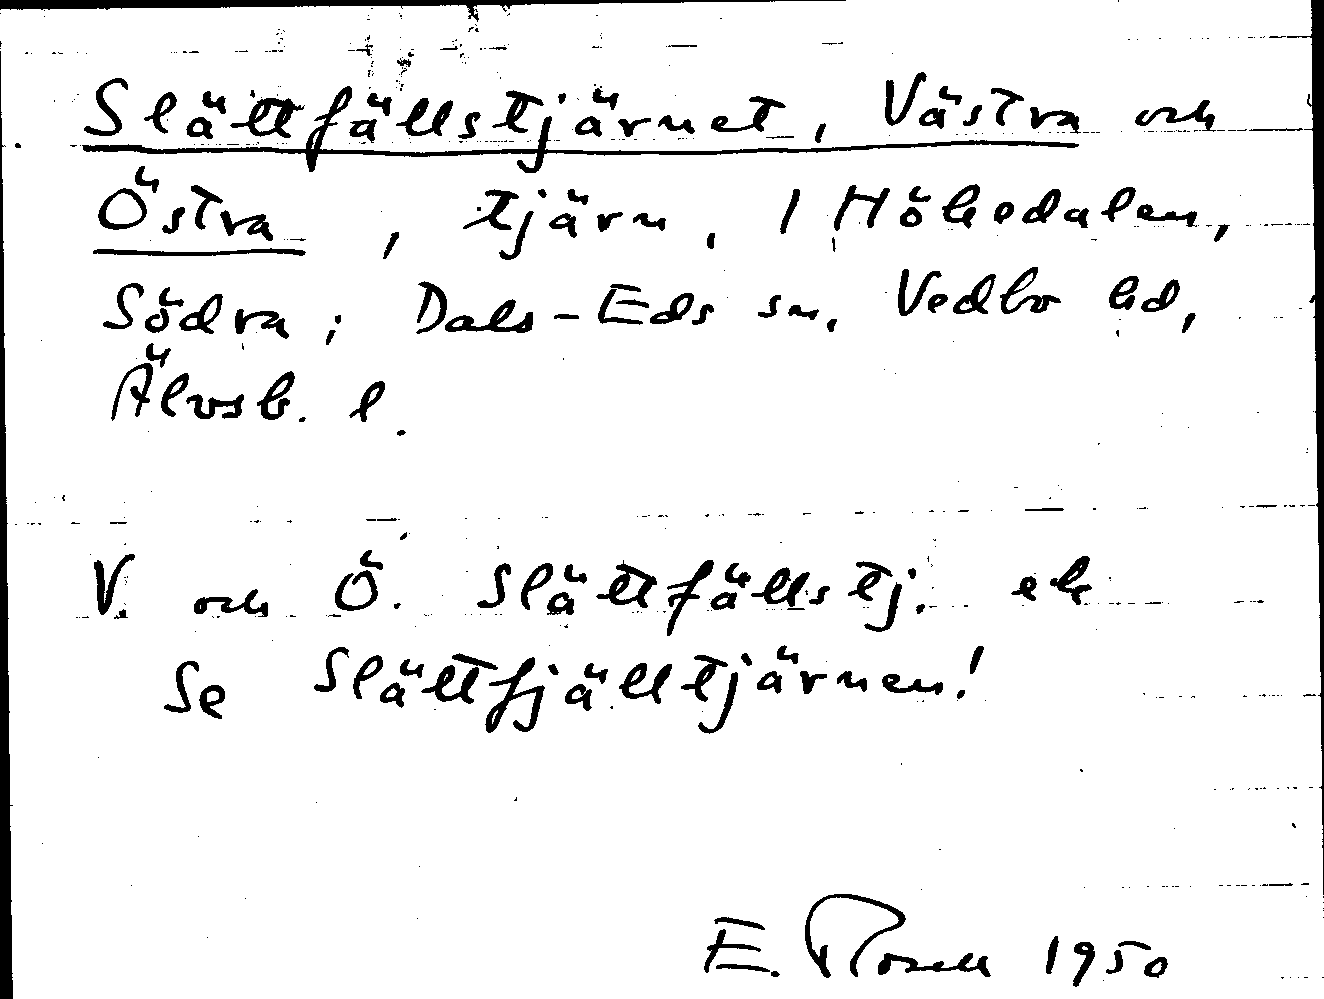 Slättfällstjärnet, Västra och
Östra, tjärn, 1 Hökedalen,
Södra; Dals-Eds sn, Vedbo hd,
Älvsb. l.
V. och Ö. Slättfällstj. ek
Se Slättfjälltjärnen!
E. Rosell 1950